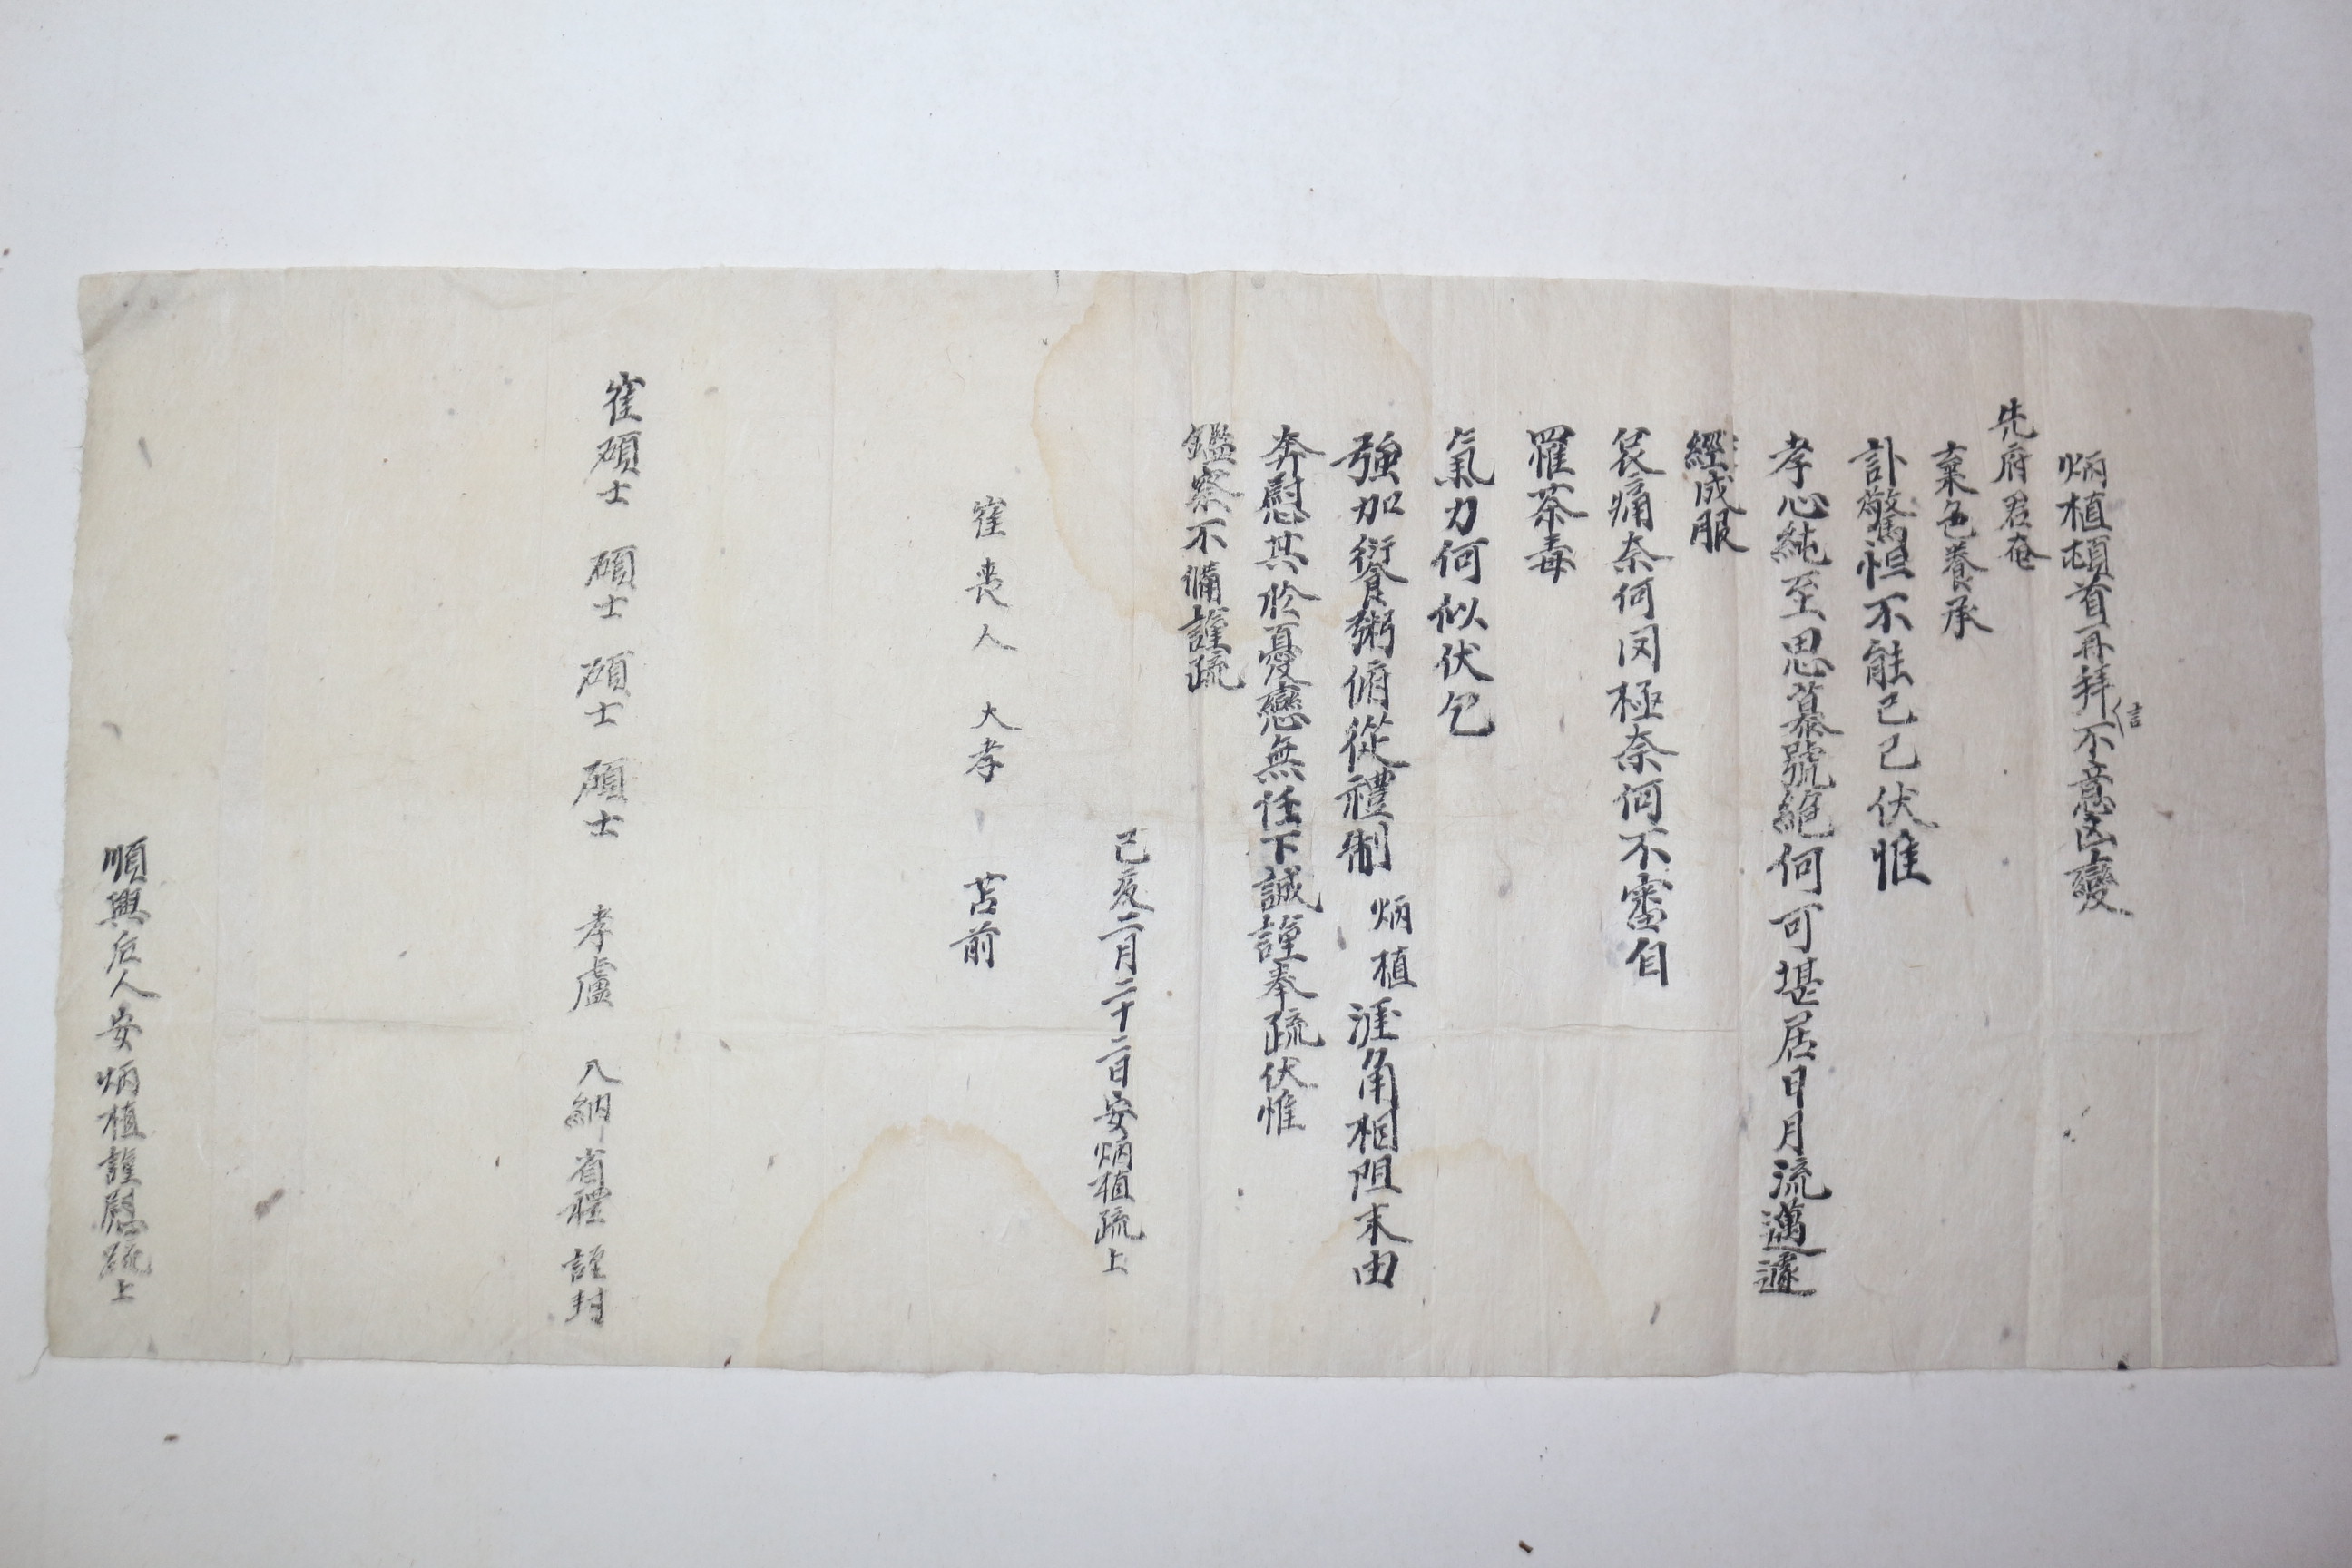 炳植頓首再拜信不意凶變
先府君奄
棄色養承
訃驚怛不能已已伏惟
孝心純至思慕號絶何可堪居日月流邁遽
經成服
哀痛奈何罔極奈何不審自
罹荼毒
氣力何似伏乞
強加餐粥俯從禮制炳植涯角相阻末由
奔慰其於憂戀無任下誠謹奉疏伏惟
鑑察不備謹疏
己亥二月二十二日安炳植疏上
崔喪人 大孝 苫前
崔碩士 碩士 碩士 碩士 孝廬 入納 省禮 謹封
順興后人安炳植謹慰疏上